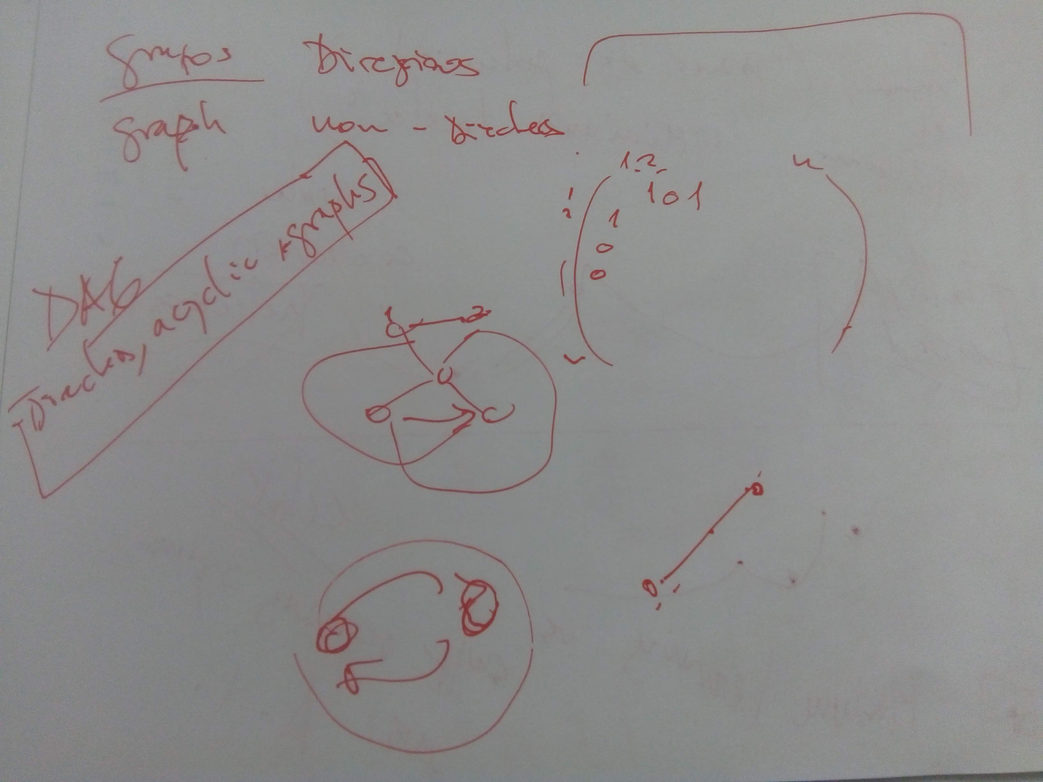 grafos Dirigidos
graph non-directed
DAG
Directed, acyclic graphs
1 2 n
1 0 1
1
0
0
1 2